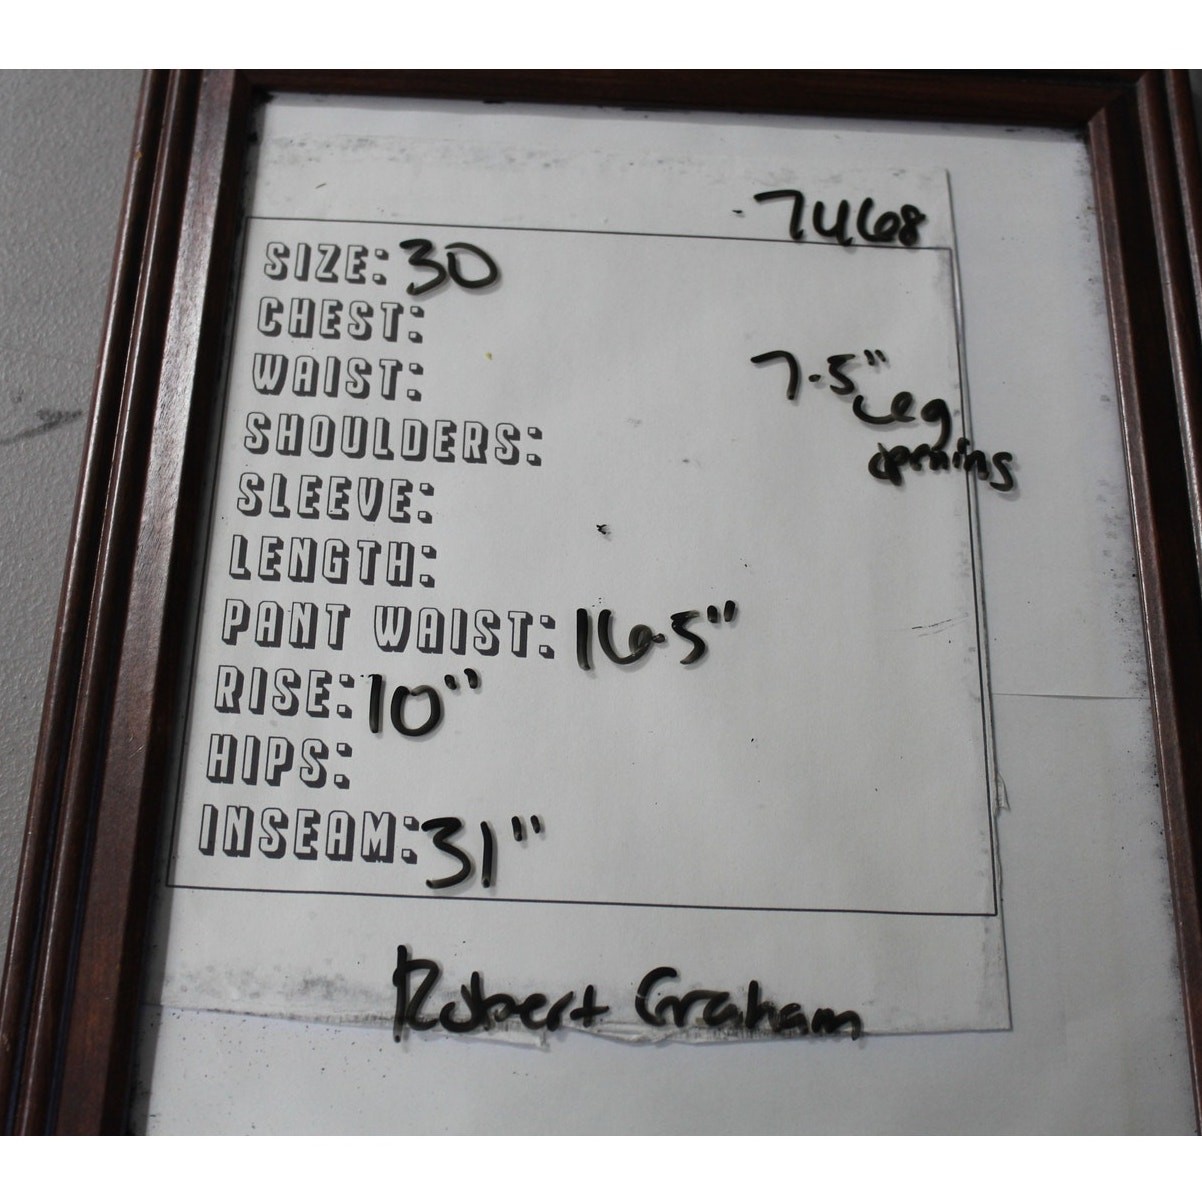 7468
SIZE: 30
CHEST:
WAIST:
7.5"
Leg
opening
SHOULDERS:
SLEEVE:
LENGTH:
PANT WAIST: 16.5"
RISE: 10"
HIPS:
INSEAM: 31"
Robert Graham